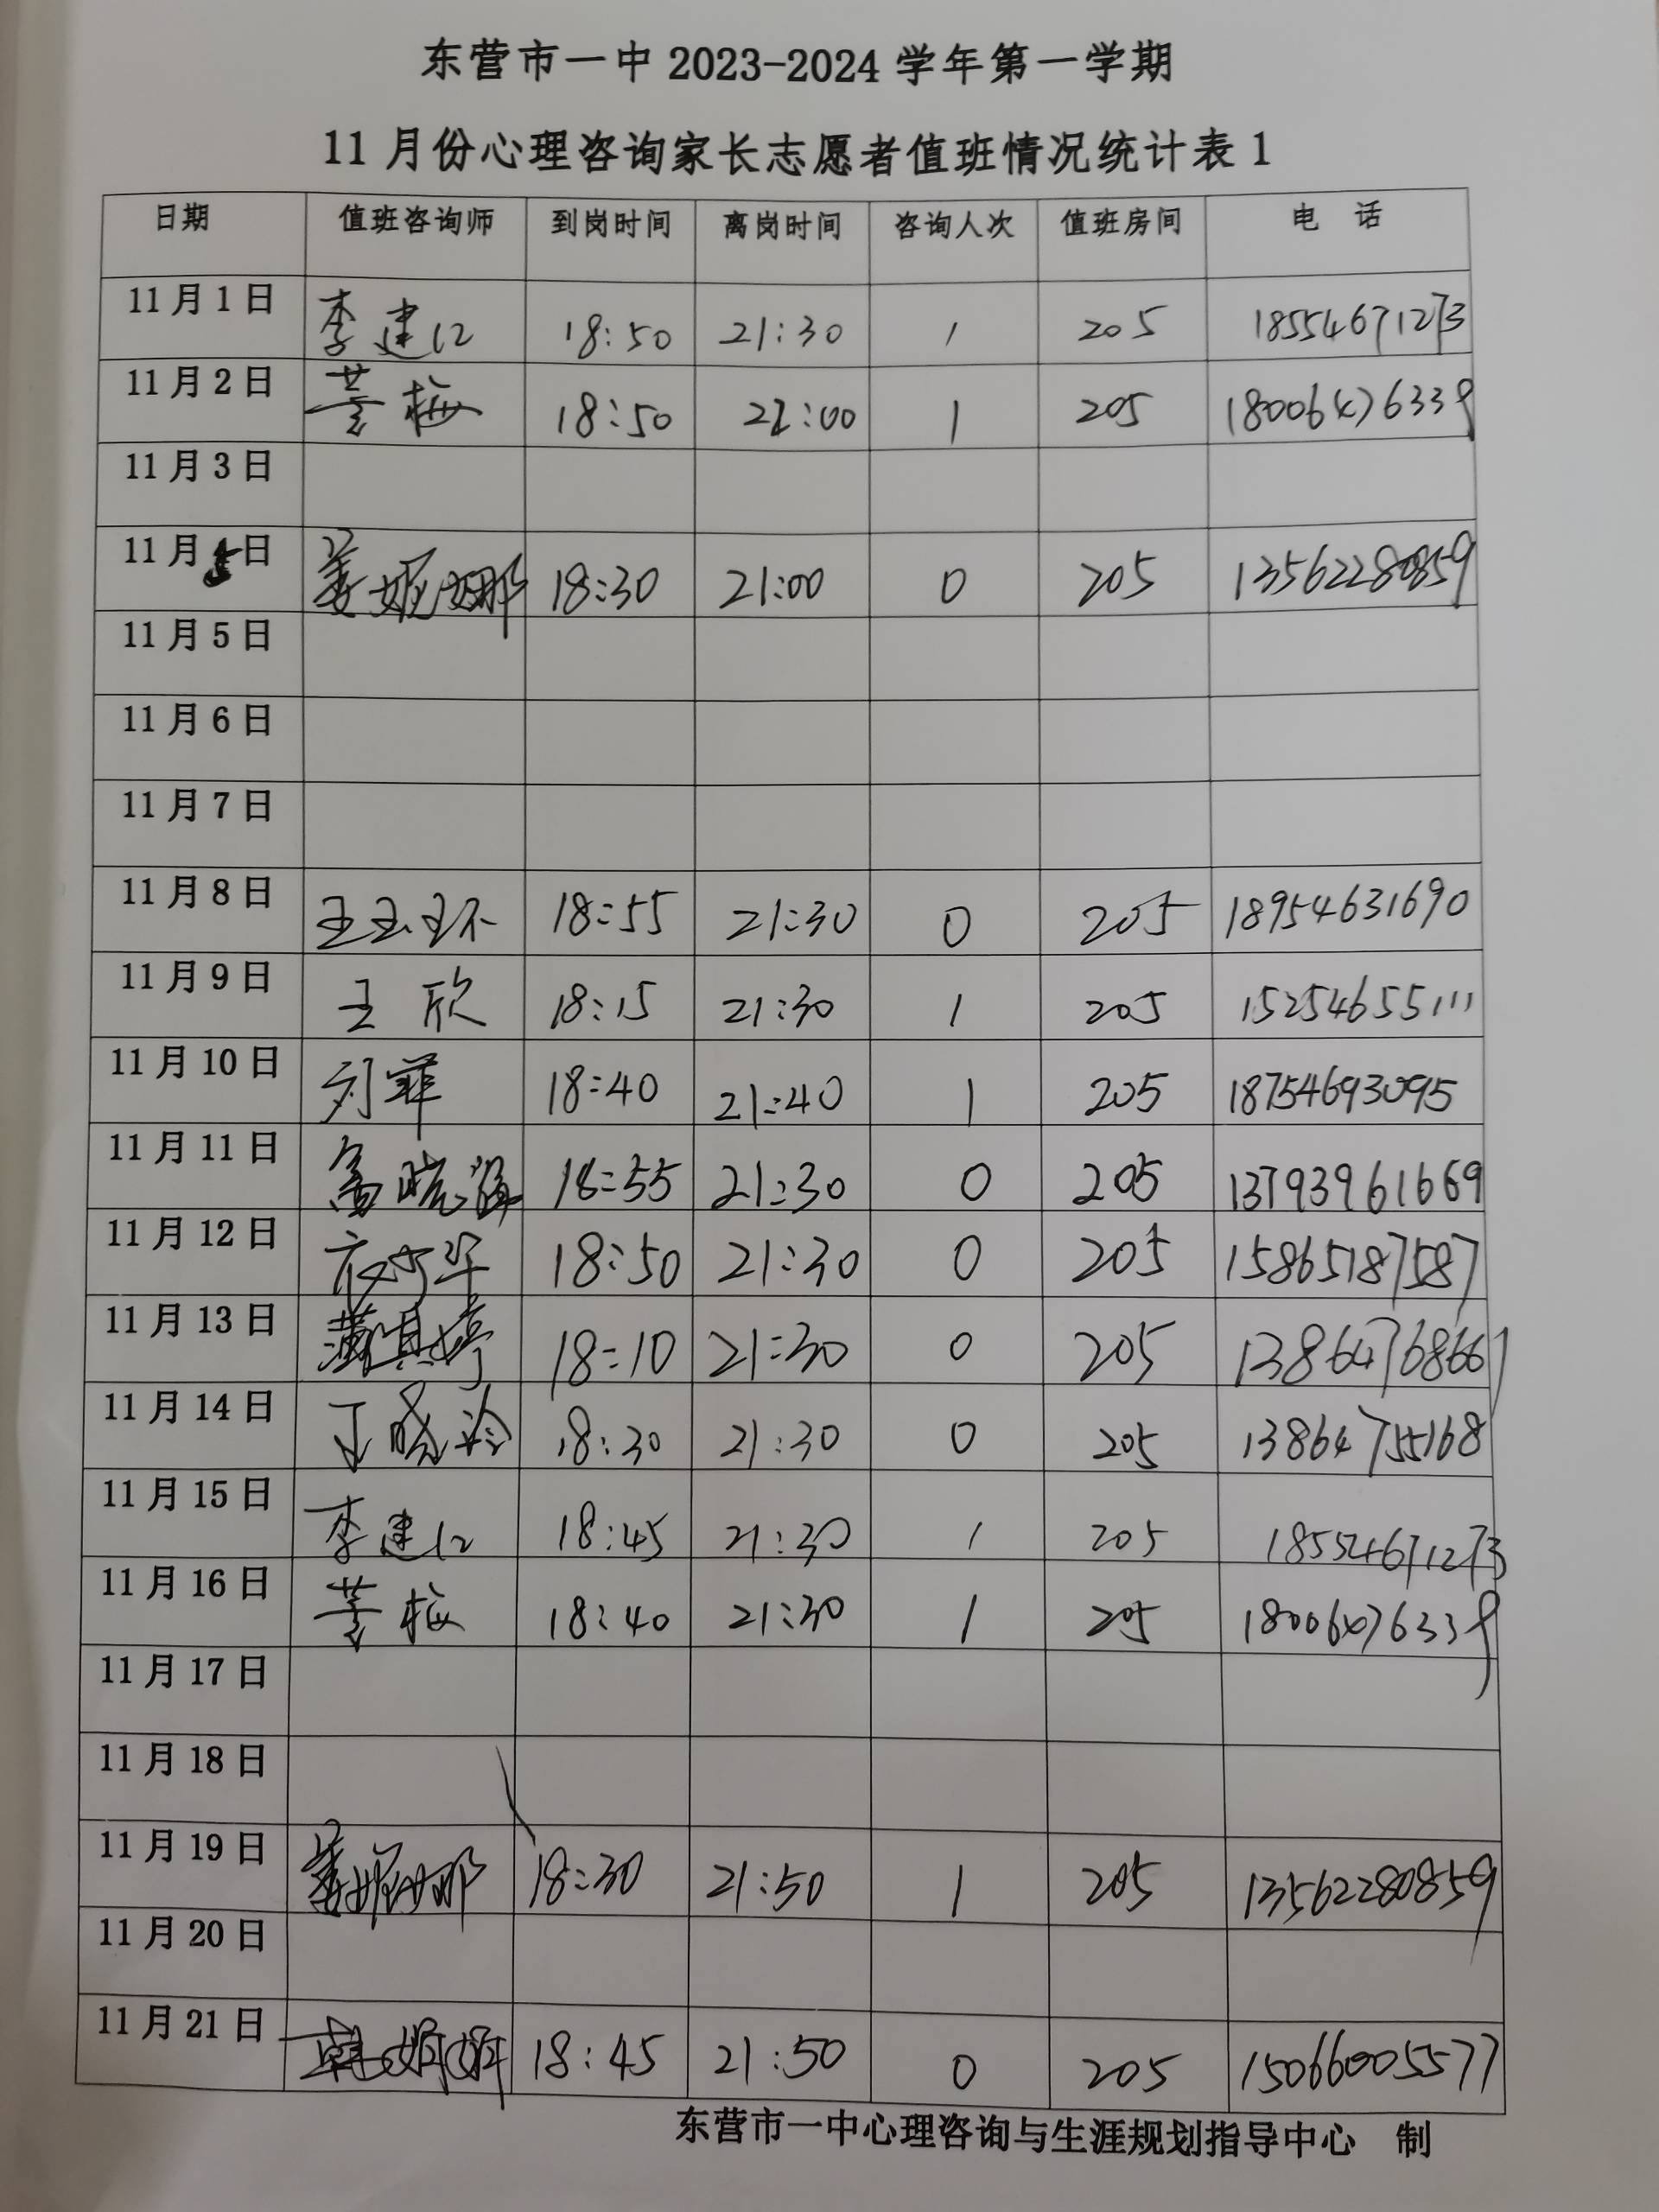 东营市一中 2023-2024 学年第一学期
11 月份心理咨询家长志愿者值班情况统计表 1
日期 值班咨询师 到岗时间 离岗时间 咨询人次 值班房间 电 话
11 月 1 日 李建仁 18:50 21:30 1 205 18554671273
11 月 2 日 董梅 18:50 22:00 1 205 18006476339
11 月 3 日
11 月 5 日 姜妮娜 18:30 21:00 0 205 13562280859
11 月 5 日
11 月 6 日
11 月 7 日
11 月 8 日 王玉环 18:55 21:30 0 205 18954631690
11 月 9 日 王欣 18:15 21:30 1 205 15254655111
11 月 10 日 刘菲 18:40 21:40 1 205 18754693095
11 月 11 日 18:55 21:30 0 205 13793961669
11 月 12 日 18:50 21:30 0 205 15865187587
11 月 13 日 18:10 21:30 0 205 13864768661
11 月 14 日 丁晓玲 18:30 21:30 0 205 13864755168
11 月 15 日 李建仁 18:45 21:30 1 205 18554671273
11 月 16 日 董梅 18:40 21:30 1 205 18006476339
11 月 17 日
11 月 18 日
11 月 19 日 姜妮娜 18:30 21:50 1 205 13562280859
11 月 20 日
11 月 21 日 韩妍妍 18:45 21:50 0 205 15066005577
东营市一中心理咨询与生涯规划指导中心 制